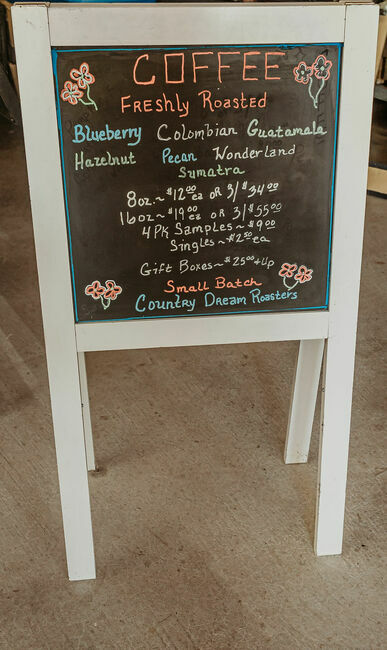 COFFEE
Freshly Roasted
Blueberry Colombian Guatamala
Hazelnut Pecan Wonderland
Sumatra
8oz.~ $12.00 ea OR 3/$34.00
16oz~ $19.00 ea OR 3/$55.00
4 PK Samples ~ $9.00
Singles ~ $2.50 ea
Gift Boxes ~ $25.00 + up
Small Batch
Country Dream Roasters